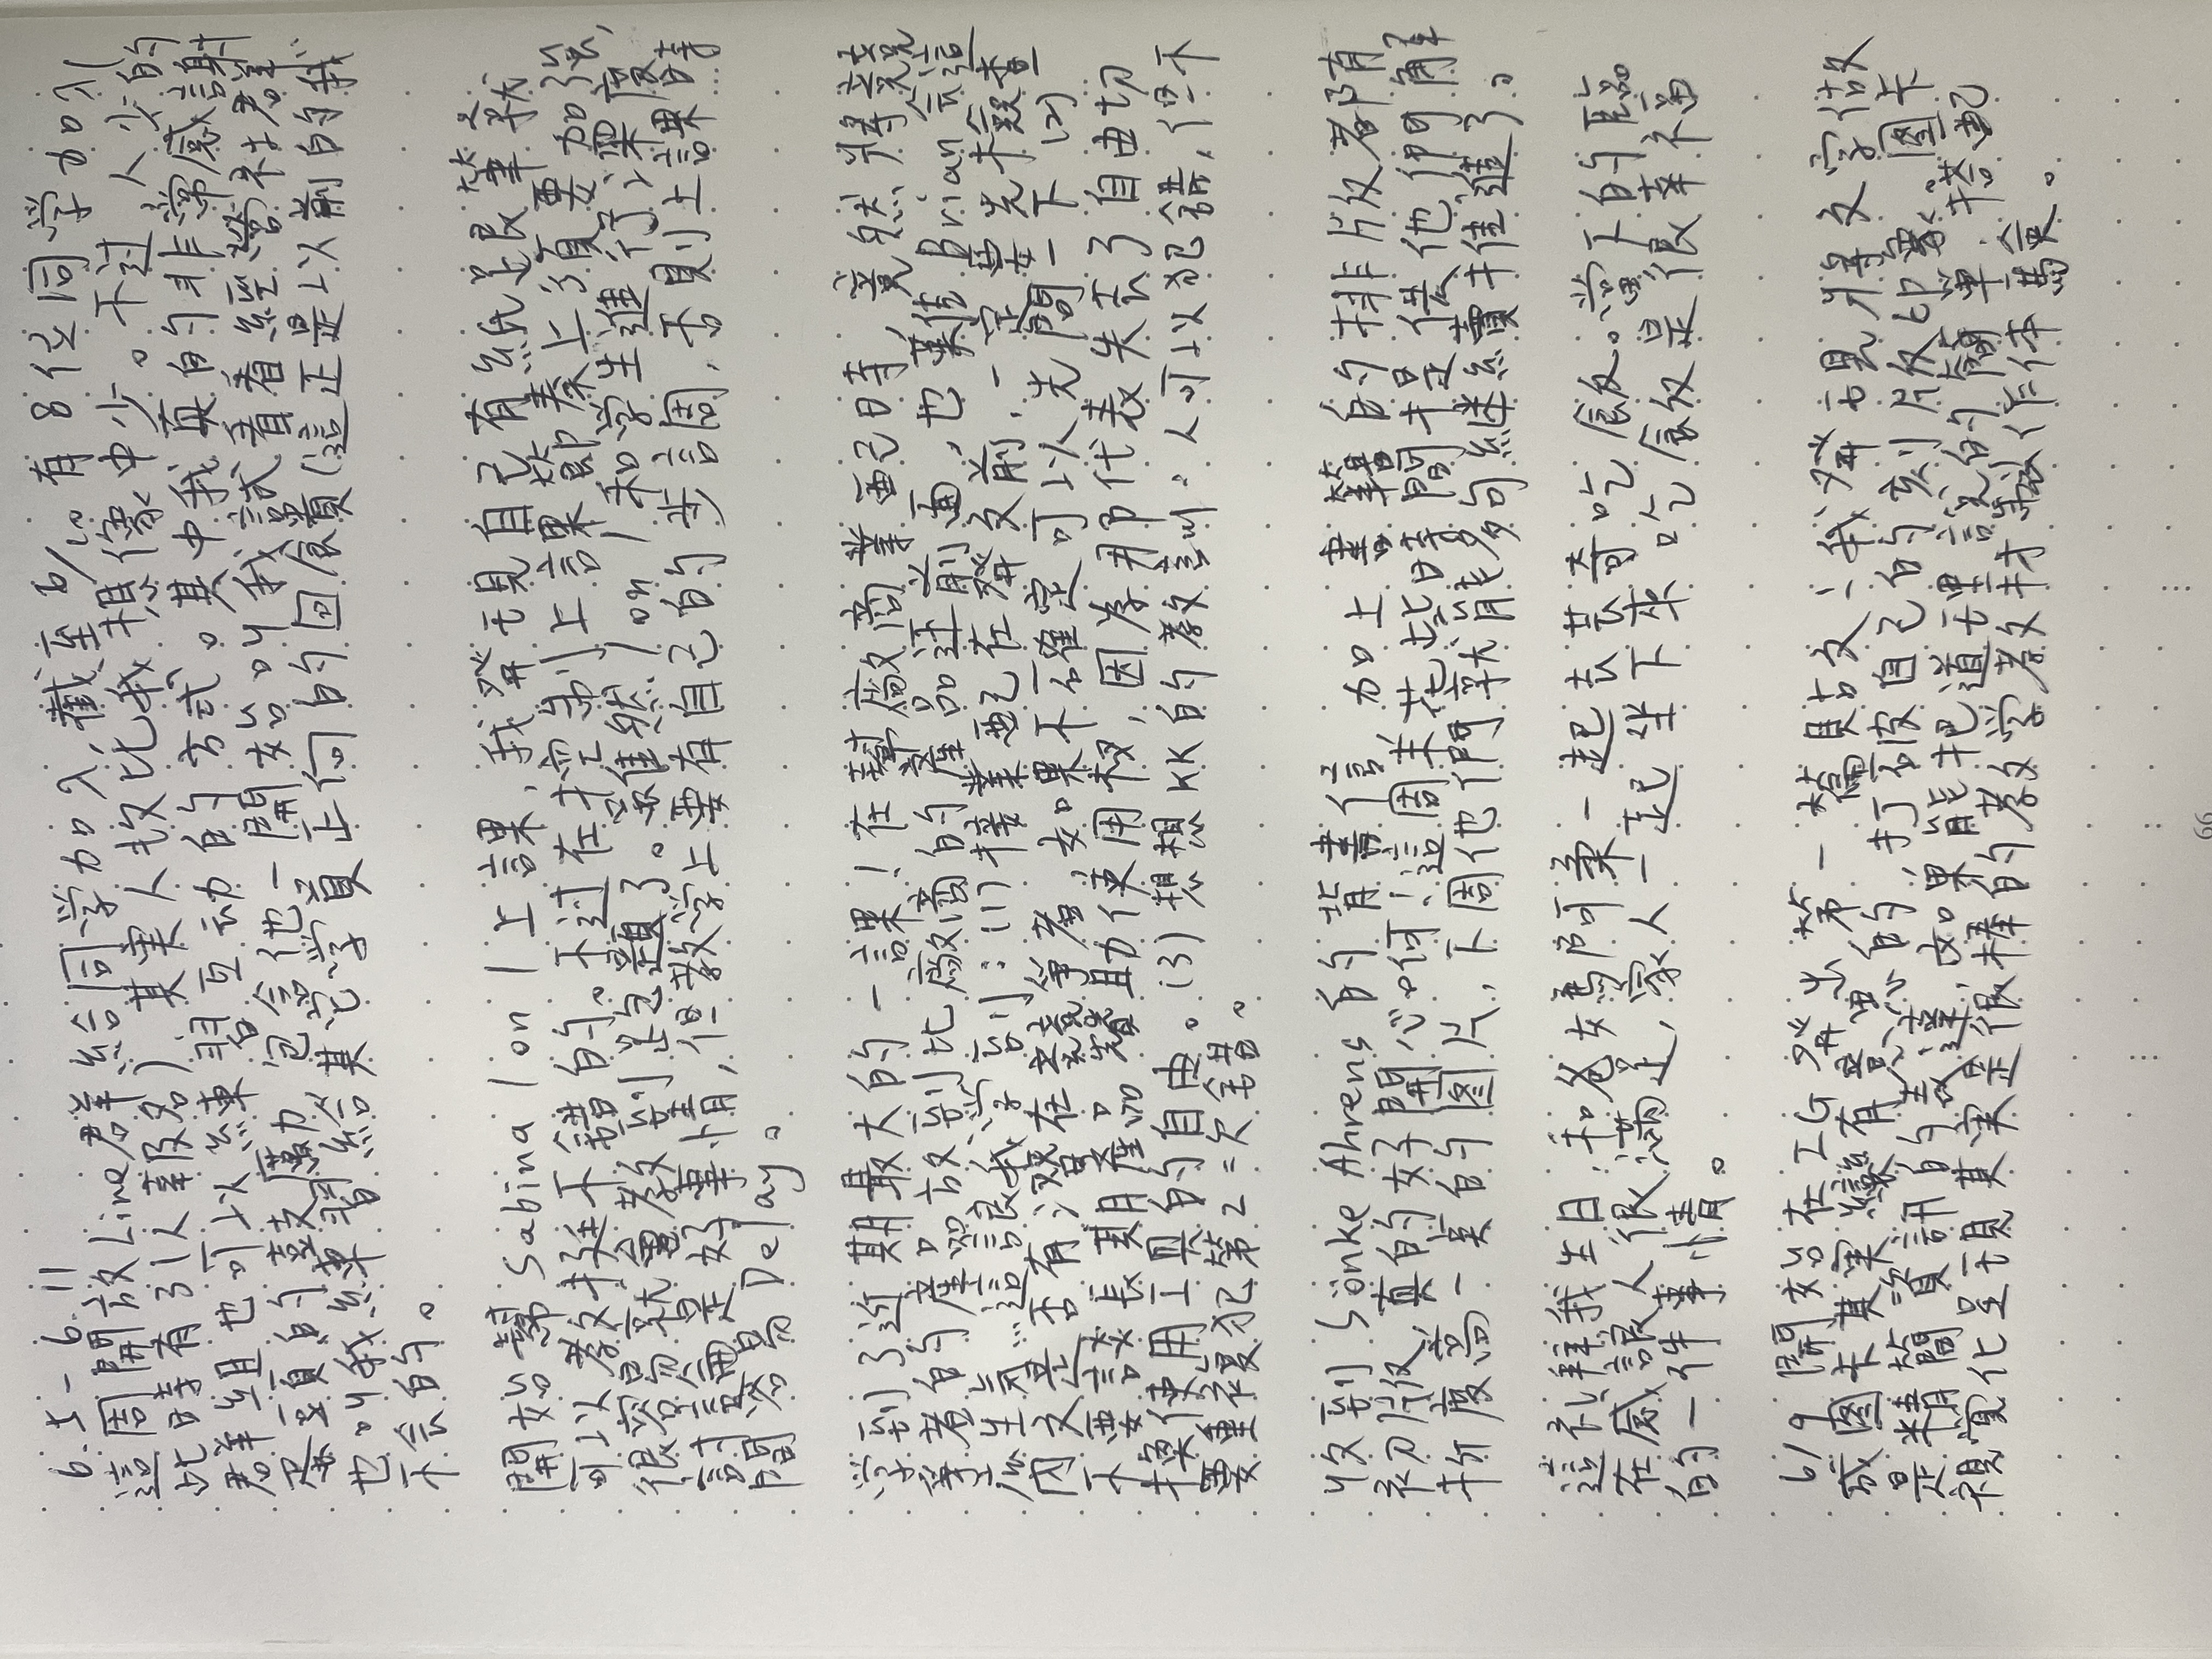 6.5-6.11
這周開放Line群給同学加入,截至6/10有8位同学加入(
此時有31人報名),其実人数比我想像中少。不过,人少的
群組也可以練習互动的方式。其中我真的非常感謝
蛋頭的鼓勵,包含他一開始叫我試看看經營社群
也叫我練習給其它学員正向的回饋(這正是以前的我
不会的。
開始幫Sabina 1 on 1上課,我発現自己有紙跟筆就
可以教挺不錯的。不过在控制上課節奏上須要加強,
很容易就會教到跑題了。雖然1 on 1和学生進行深度
討論是好事情,但教学上要有自己的步調,否則上課時
間容易Delay。
学到了近期最大的一課!在幫廠商業配時,竟然將競
爭者的產品放到比廠商的產品还前面,也難怪Brian会這
広生気…這讓我学到:(1)接業配在発文前,一定要先檢查
內文是否有潛在競爭者,如果不確定可以先問一下(2)
不要談長期產品贊助使用权,因為那代表失去了自由切
換使用工具的自由。(3)想想KK的教訓:人可以犯錯,但不
要重複犯第2=次錯。
收到Sönke Ahrens的背書信,加上書籍的排版都有
初版,真的好開心啊!這周末花些時間提供他們解
析度高一点的图片,下周他們就能夠継續推進了。
這礼拜我生日,和爸媽阿柔一起去芸奇吃飯。當下的臨
在感讓人很滿足,家人一起坐下來吃飯是很幸福
的一件事情。
6/9開始在IG発出第一篇貼文:我発現將文字做
成图卡其実還有意思的,打破自己的刻版印象。图卡
是精簡資訊的表達,如果能把道理說的簡单,搭配
視覚化呈現其実是很棒的教学教材製作体驗。
66